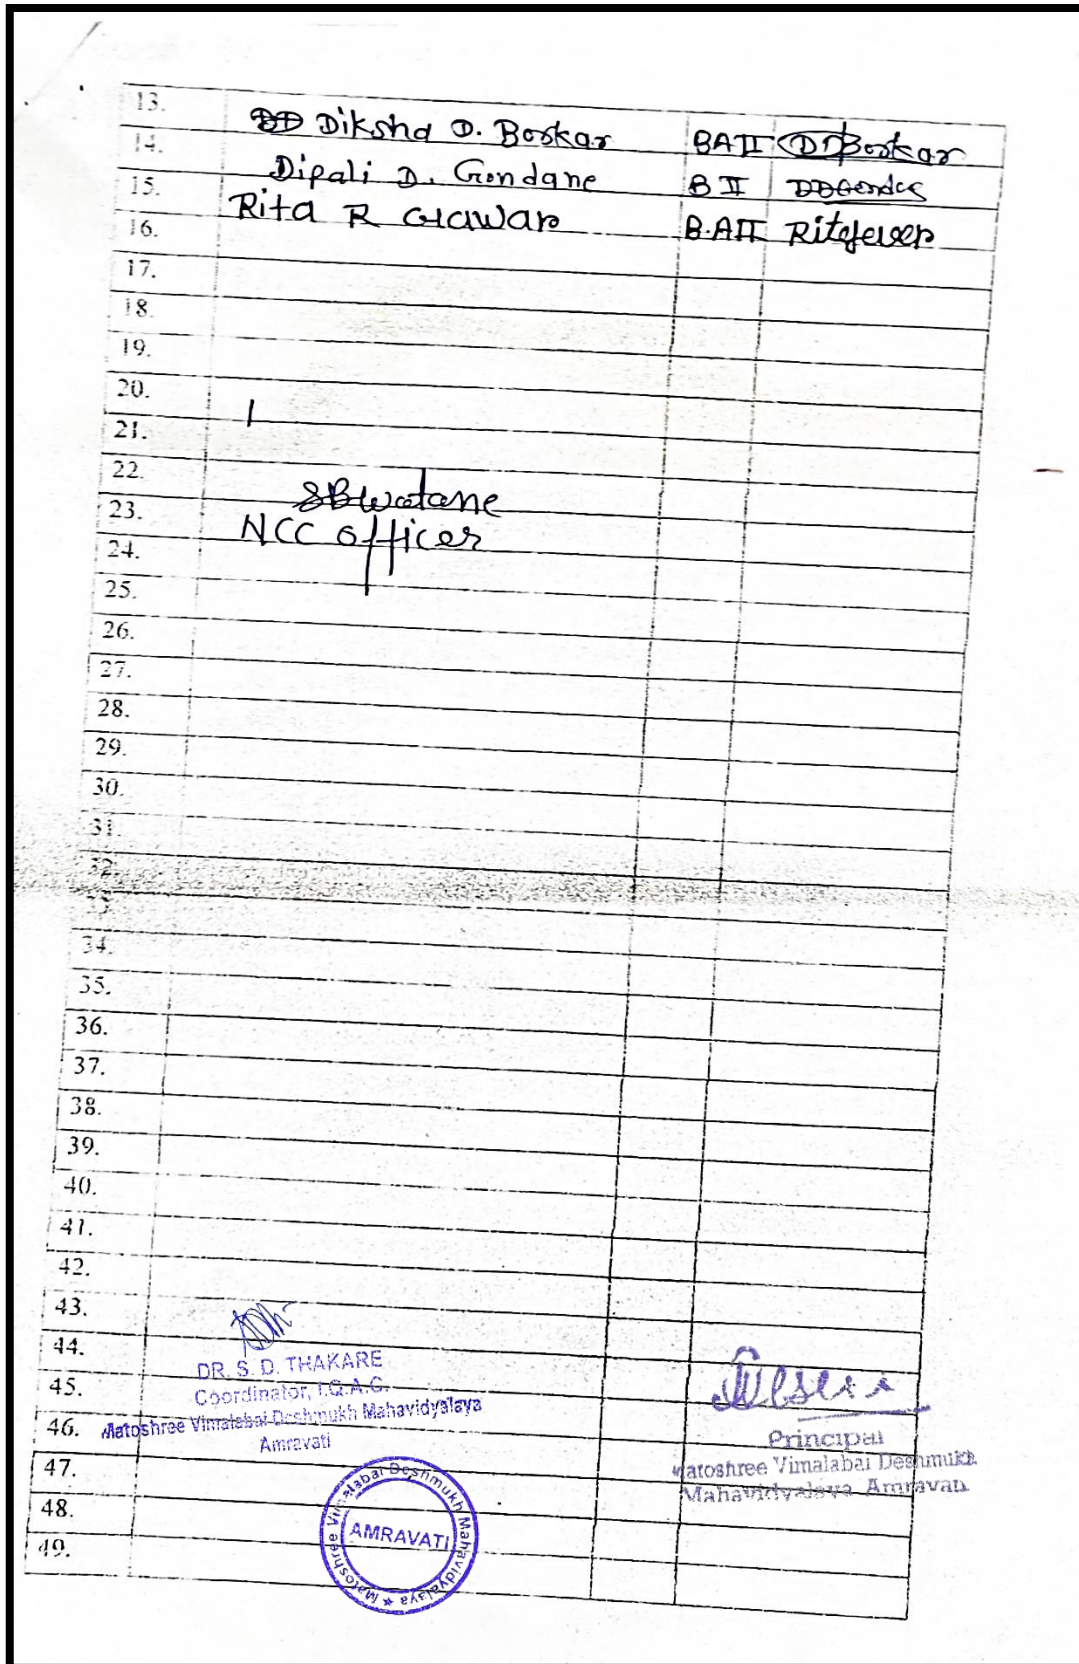 13. Diksha D. Borkar BAII D Borkar
14. Dipali D. Gondane B II
15. Rita R Gawar B.AII
16.
17.
18.
19.
20.
21.
22.
23. SBWatane
24. NCC officer
25.
26.
27.
28.
29.
30.
31.
32.
33.
34.
35.
36.
37.
38.
39.
40.
41.
42.
43.
44.
45.
46.
47.
48.
49.
DR. S. D. THAKARE
Coordinator, I.Q.A.C.
Matoshree Vimalabai Deshmukh Mahavidyalaya
Amravati
Principal
Matoshree Vimalabai Deshmukh
Mahavidyalaya Amravati
Matoshree Vimalabai Deshmukh Mahavidyalaya ★
AMRAVATI